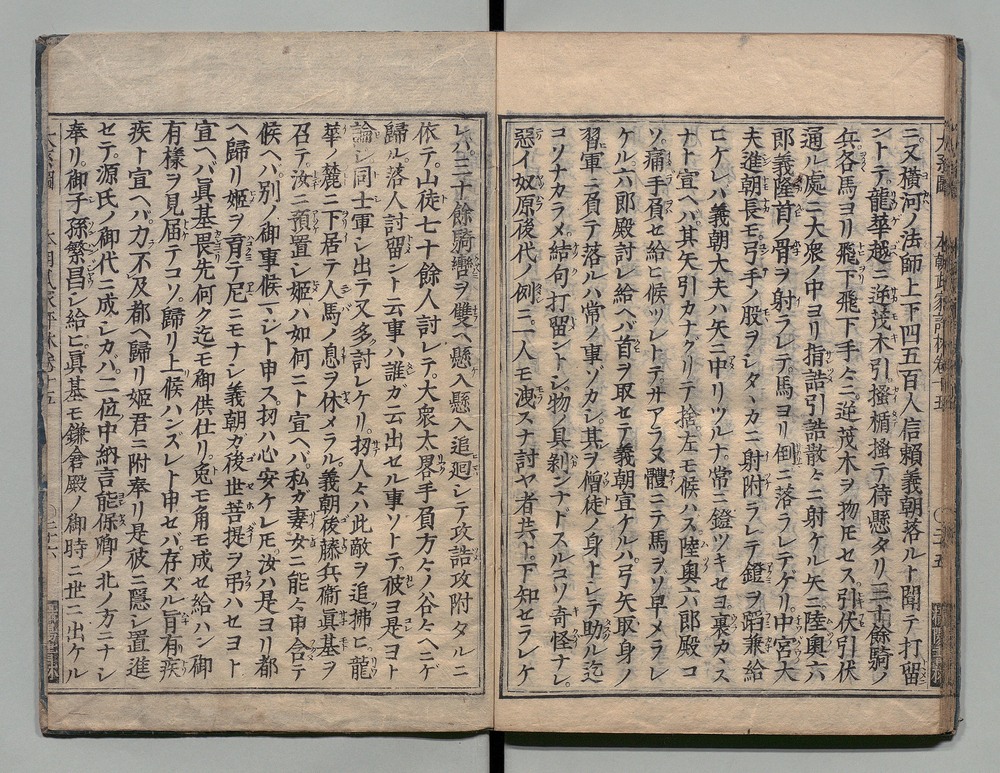 ニ又横河ノ法師上下四五百人信頼義朝落ルト聞テ打留
ントテ龍華越ニ逆茂木引搔楯搔テ待懸タリ三十餘騎ノ
兵各馬ヨリ飛下飛下手々ニ逆茂木ヲ物モセス引伏引伏
通ル處ニ大衆ノ中ヨリ指詰引詰散々ニ射ケル矢ニ陸奥六
郎義隆首ノ骨ヲ射ラレテ馬ヨリ倒ニ落ラレテケリ中宮大
夫進朝長モ弓手ノ股ヲシタヽカニ射附ラレテ鐙ヲ蹈兼給
ヒケレハ義朝大夫ハ矢ニ中リツルナ常ニ鐙ツキセヨ裏カヽス
ナト宣ヘハ其矢引カナグリテ捨左モ候ハス陸奥六郎殿コ
ソ痛手負セ給ヒ候ツレトテサアラヌ體ニテ馬ヲソ早メラレ
ケル六郎殿討レ給ヘバ首ヲ取セテ義朝宣ケルハ弓矢取身ノ
習軍ニ負テ落ルハ常ノ事ゾカシ其ヲ僧徒ノ身トシテ助ル迄
コソナカラメ結句打留ントシ物ノ具剝ンナドスルコソ奇怪ナレ
惡イ奴原後代ノ例ニ一人モ洩スナ討ヤ者共ト下知セラレケ
レバ三十餘騎轡ヲ雙ヘ懸入懸入追廻シテ攻詰攻附タルニ
依テ山徒七十餘人討レテ大衆太畧手負方々ノ谷々ヘニゲ
歸ル落人討留ント云事ハ誰ガ云出セル事ソトテ彼ヨ是ヨト
論シ同士軍シ出テ又多討レケリ扨人々ハ此敵ヲ追拂ヒ龍
華ノ麓ニ下居テ人馬ノ息ヲ休メラル義朝後藤兵衞眞基ヲ
召テ汝ニ預置シ姬ハ如何ニト宣ヘバ私ガ妻女ニ能々申含テ
候ヘバ別ノ御事候マジト申ス扨ハ心安ケレモ汝ハ是ヨリ都
ヘ歸リ姬ヲ育テ尼ニモナシ義朝カ後世菩提ヲ弔ハセヨト
宣ヘバ眞基畏先何ク迄モ御供仕リ兎モ角モ成セ給ハン御
有樣ヲ見届テコソ歸リ上候ハンズレト申セバ存ズル旨有疾
疾ト宣ヘバ力不及都ヘ歸リ姬君ニ附奉リ是彼ニ隱シ置進
セテ源氏ノ御代ニ成シカバ二位中納言能保卿ノ北ノ方ニナシ
奉リ御子孫繁昌シ給ヒ眞基モ鎌倉殿ノ御時ニ世ニ出ケル